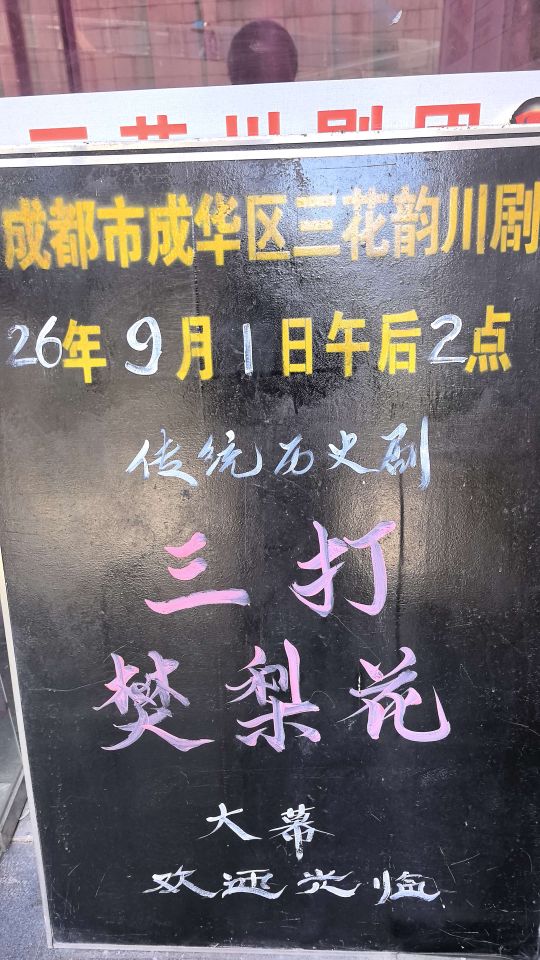 三花川剧团
成都市成华区三花韵川剧
26年9月1日午后2点
传统历史剧
三打
樊梨花
大幕
欢迎光临